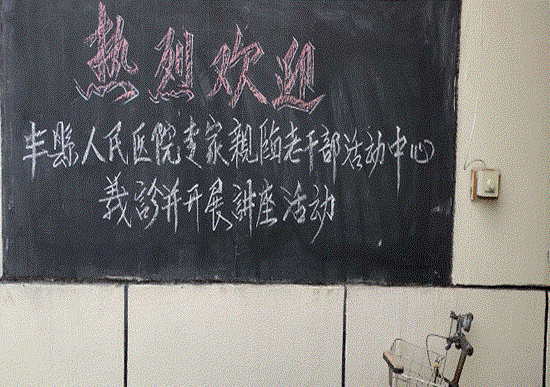 热烈欢迎
丰縣人民医院专家親临老干部活动中心
義診并开展講座活动